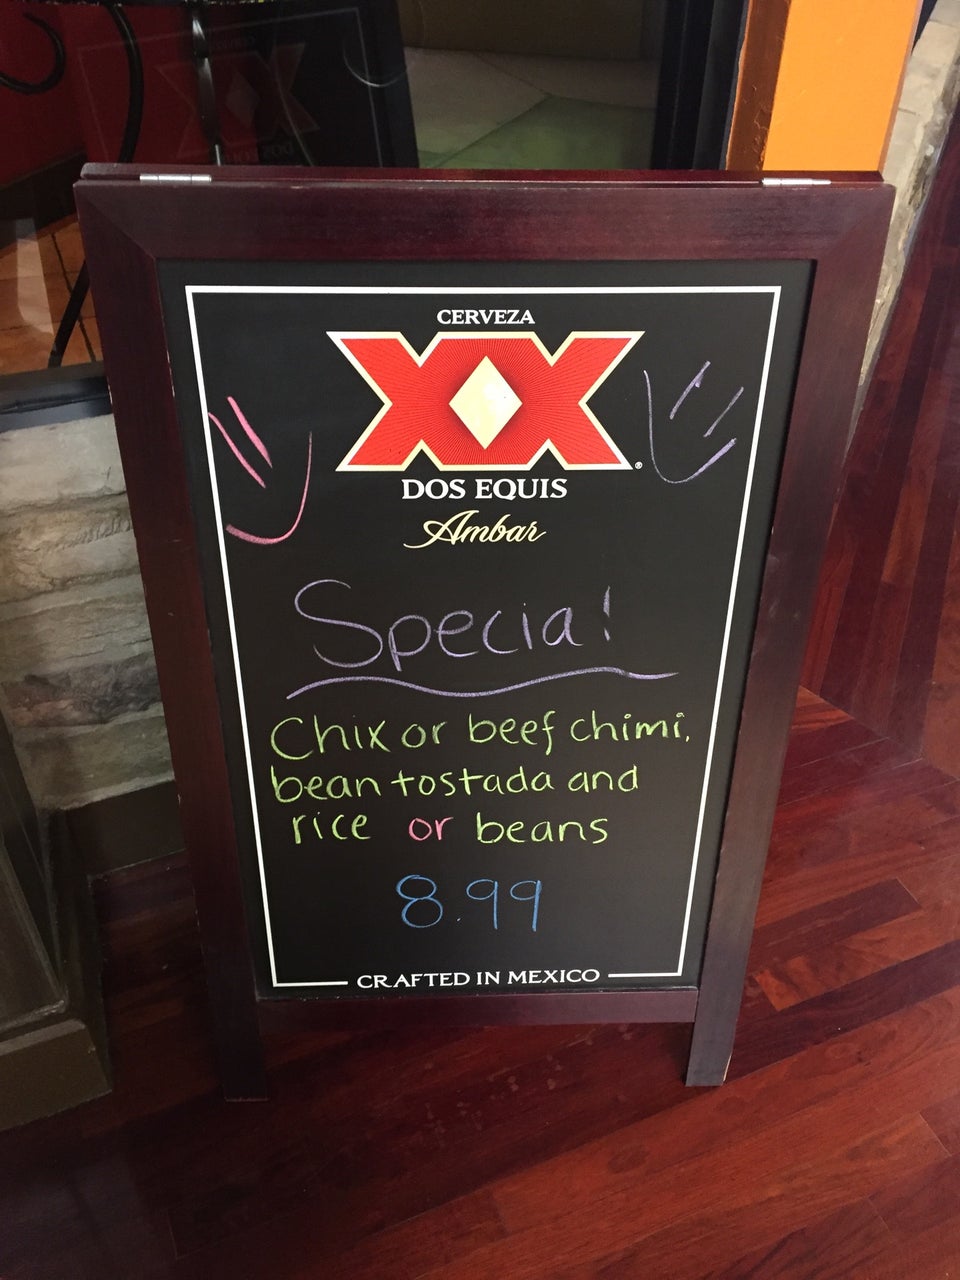 CERVEZA
XX
DOS EQUIS
Ambar
Special
Chix or beef chimi,
bean tostada and
rice or beans
8.99
CRAFTED IN MEXICO